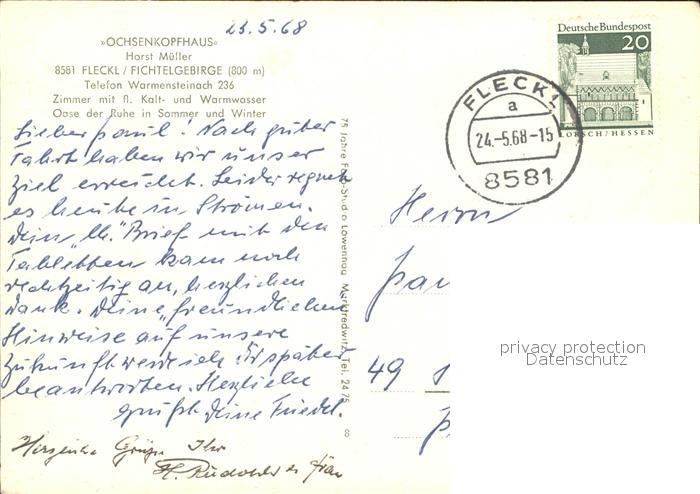 23.5.68
»OCHSENKOPFHAUS«
Horst Müller
8581 FLECKL / FICHTELGEBIRGE (800 m)
Telefon Warmensteinach 236
Zimmer mit fl. Kalt- und Warmwasser
Oase der Ruhe in Sommer und Winter
Lieber Paul! Nach guter
Fahrt haben wir unser
Ziel erreicht. Leider regnet
es heute in Strömen.
Dein "lb." Brief mit den
Tabletten kam noch
rechtzeitig an, herzlichen
Dank. Deine "freundlichen
Hinweise auf unsere
Zukunft werde ich Dir später
beantworten. Herzliche
grüßt Deine Friedel.
Herzliche Grüße Ihr
H. Frau
75 Jahre Foto-Studio Löwenhag Marktredwitz, Tel. 24 75
8
Deutsche Bundespost
20
LORSCH/HESSEN
FLECKL
a
24.-5.68-15
8581
Herrn
49
privacy protection
Datenschutz